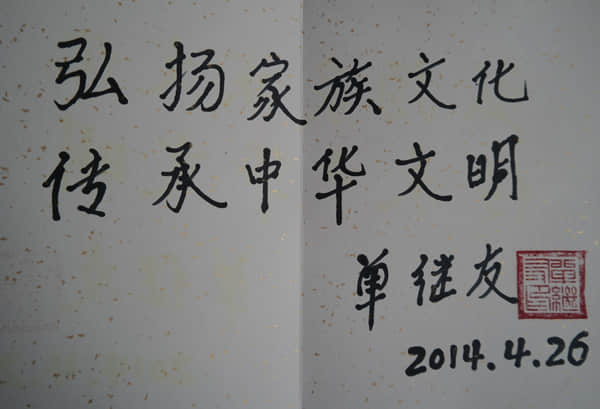 弘扬家族文化
传承中华文明
单继友
2014.4.26